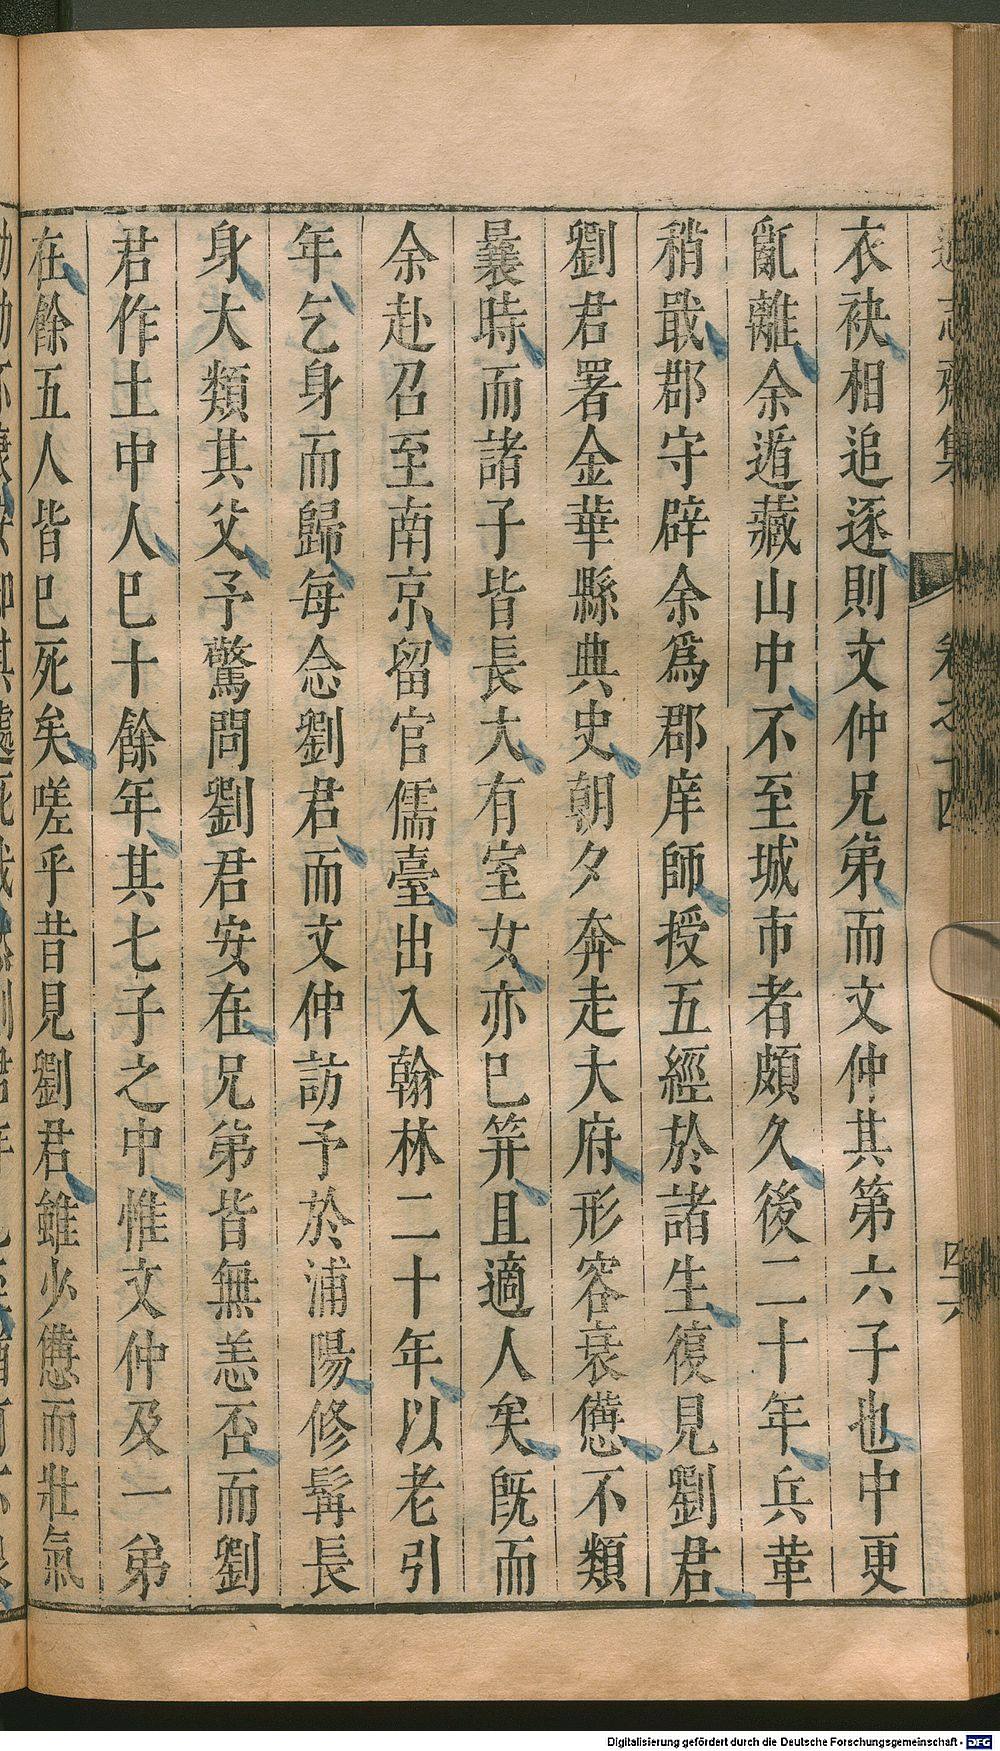 衣袂相追逐則文仲兄弟而文仲其第六子也中更
亂離余遁藏山中不至城市者頗久後二十年兵革
稍戢郡守辟余爲郡庠師授五經於諸生復見劉君
劉君署金華縣典史朝夕奔走大府形容衰憊不類
曩時而諸子皆長大有室女亦巳筓且適人矣旣而
余赴召至南京留官儒臺出入翰林二十年以老引
年乞身而歸每念劉君而文仲訪予於浦陽修髯長
身大類其父予驚問劉君安在兄弟皆無恙否而劉
君作土中人巳十餘年其七子之中惟文仲及一弟
在餘五人皆巳死矣嗟乎昔見劉君雖少憊而壯氣
卷之十四
Digitalisierung gefördert durch die Deutsche Forschungsgemeinschaft - DFG